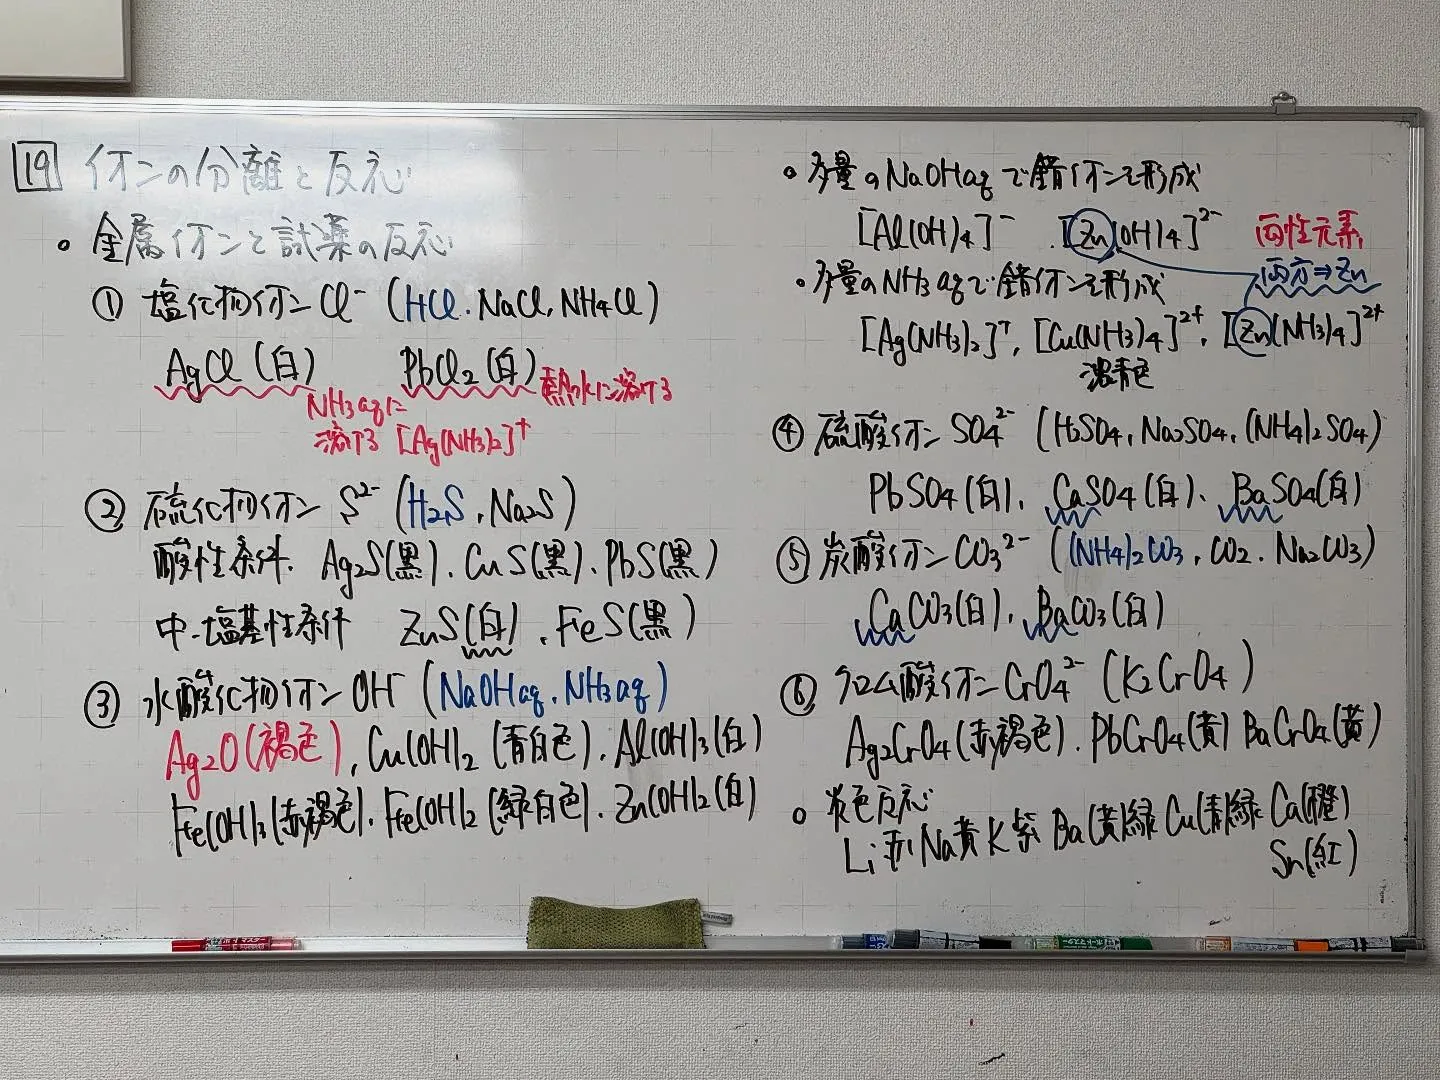 19 イオンの分離と反応
○ 金属イオンと試薬の反応
① 塩化物イオン Cl⁻ (HCl.NaCl,NH4Cl)
AgCl (白) PbCl2 (白) 熱水に溶ける
NH3aqに
溶ける [Ag(NH3)2]⁺
② 硫化物イオン S²⁻ (H2S,Na2S)
酸性条件. Ag2S(黒).CuS(黒).PbS(黒)
中.塩基性条件 ZnS(白).FeS(黒)
③ 水酸化物イオン OH⁻ (NaOHaq.NH3aq)
Ag2O(褐色),Cu(OH)2 (青白色).Al(OH)3(白)
Fe(OH)3(赤褐色).Fe(OH)2 (緑白色).Zn(OH)2(白)
○ 多量のNaOHaqで錯イオンを形成
[Al(OH)4]⁻ .[Zn(OH)4]²⁻ 両性元素
両方⇒Zn
・多量のNH3aqで錯イオンを形成
[Ag(NH3)2]⁺, [Cu(NH3)4]²⁺, [Zn(NH3)4]²⁺
濃青色
④ 硫酸イオン SO4²⁻ (H2SO4,Na2SO4,(NH4)2SO4)
PbSO4(白), CaSO4(白)、BaSO4(白)
⑤ 炭酸イオン CO3²⁻ ((NH4)2CO3,CO2.Na2CO3)
CaCO3(白),BaCO3(白)
⑥ クロム酸イオンCrO4²⁻ (K2CrO4)
Ag2CrO4(赤褐色).PbCrO4(黄) BaCrO4(黄)
○ 炎色反応
Li赤Na黄K紫Ba(黄)緑Cu(青)緑 Ca(橙)
Sr(紅)